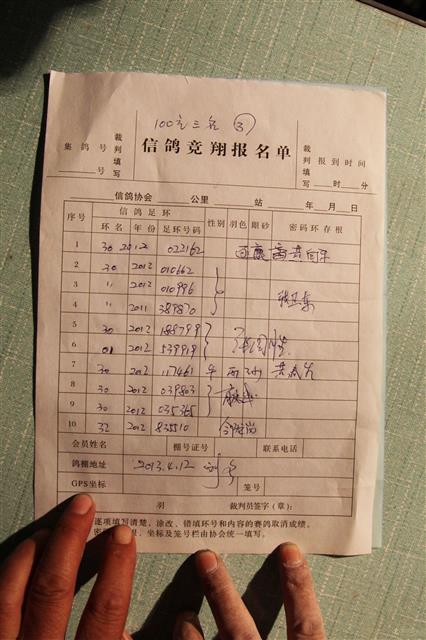 100元三名 ③
集鸽号
号
裁判填写
信鸽竞翔报名单
裁判填写
判报到时间
时 分
信鸽协会 公里 站 年 月 日
序号 信鸽足环 性别 羽色 眼砂 密码环存根
环名 年份 足环号码
1 30 2012 022162
2 30 2012 010662
3 〃 2012 010996
4 〃 2011 389870
5 30 2012 188799
6 01 2012 539919
7 30 2012 117461
8 30 2012 039803
9 30 2012 035365
10 32 2012 835510
会员姓名 棚号证号 联系电话
鸽棚地址 2013.4.12 笼号
GPS坐标
羽 裁判员签字(章):
逐项填写清楚、涂改、错填环号和内容的赛鸽取消成绩。
坐标及笼号栏由协会统一填写。